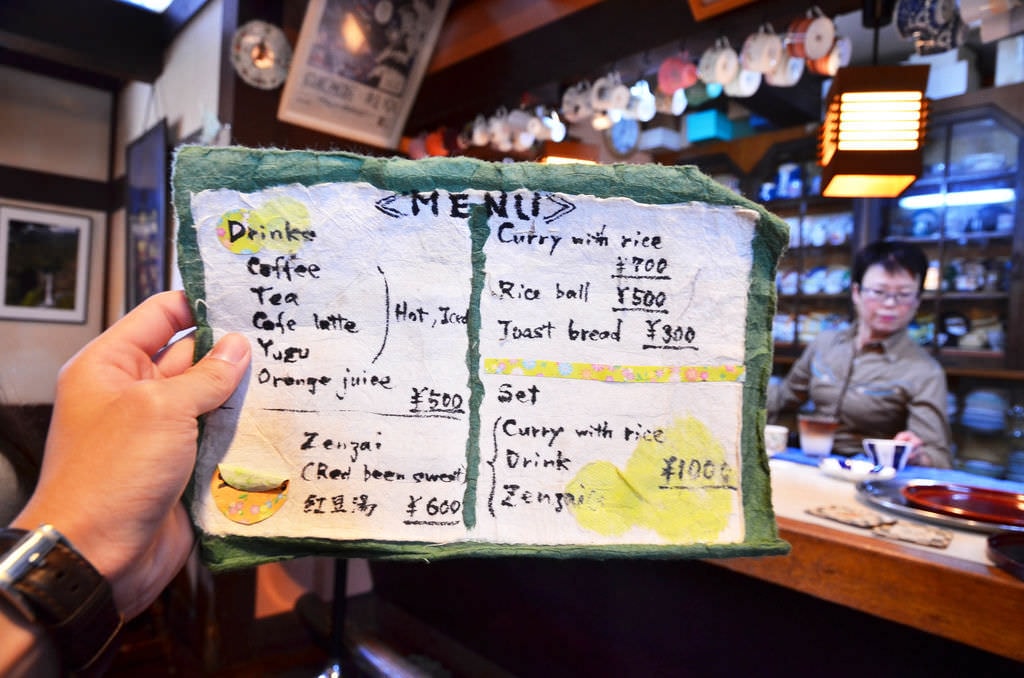 <MENU>
Drinks
Coffee
Tea
Cafe latte
Yuzu
Hot, Iced
Orange juice
¥500
Zenzai
(Red been sweet)
紅豆湯 ¥600
Curry with rice
¥700
Rice ball ¥500
Toast bread ¥300
Set
Curry with rice
Drink
Zenzai
¥1000